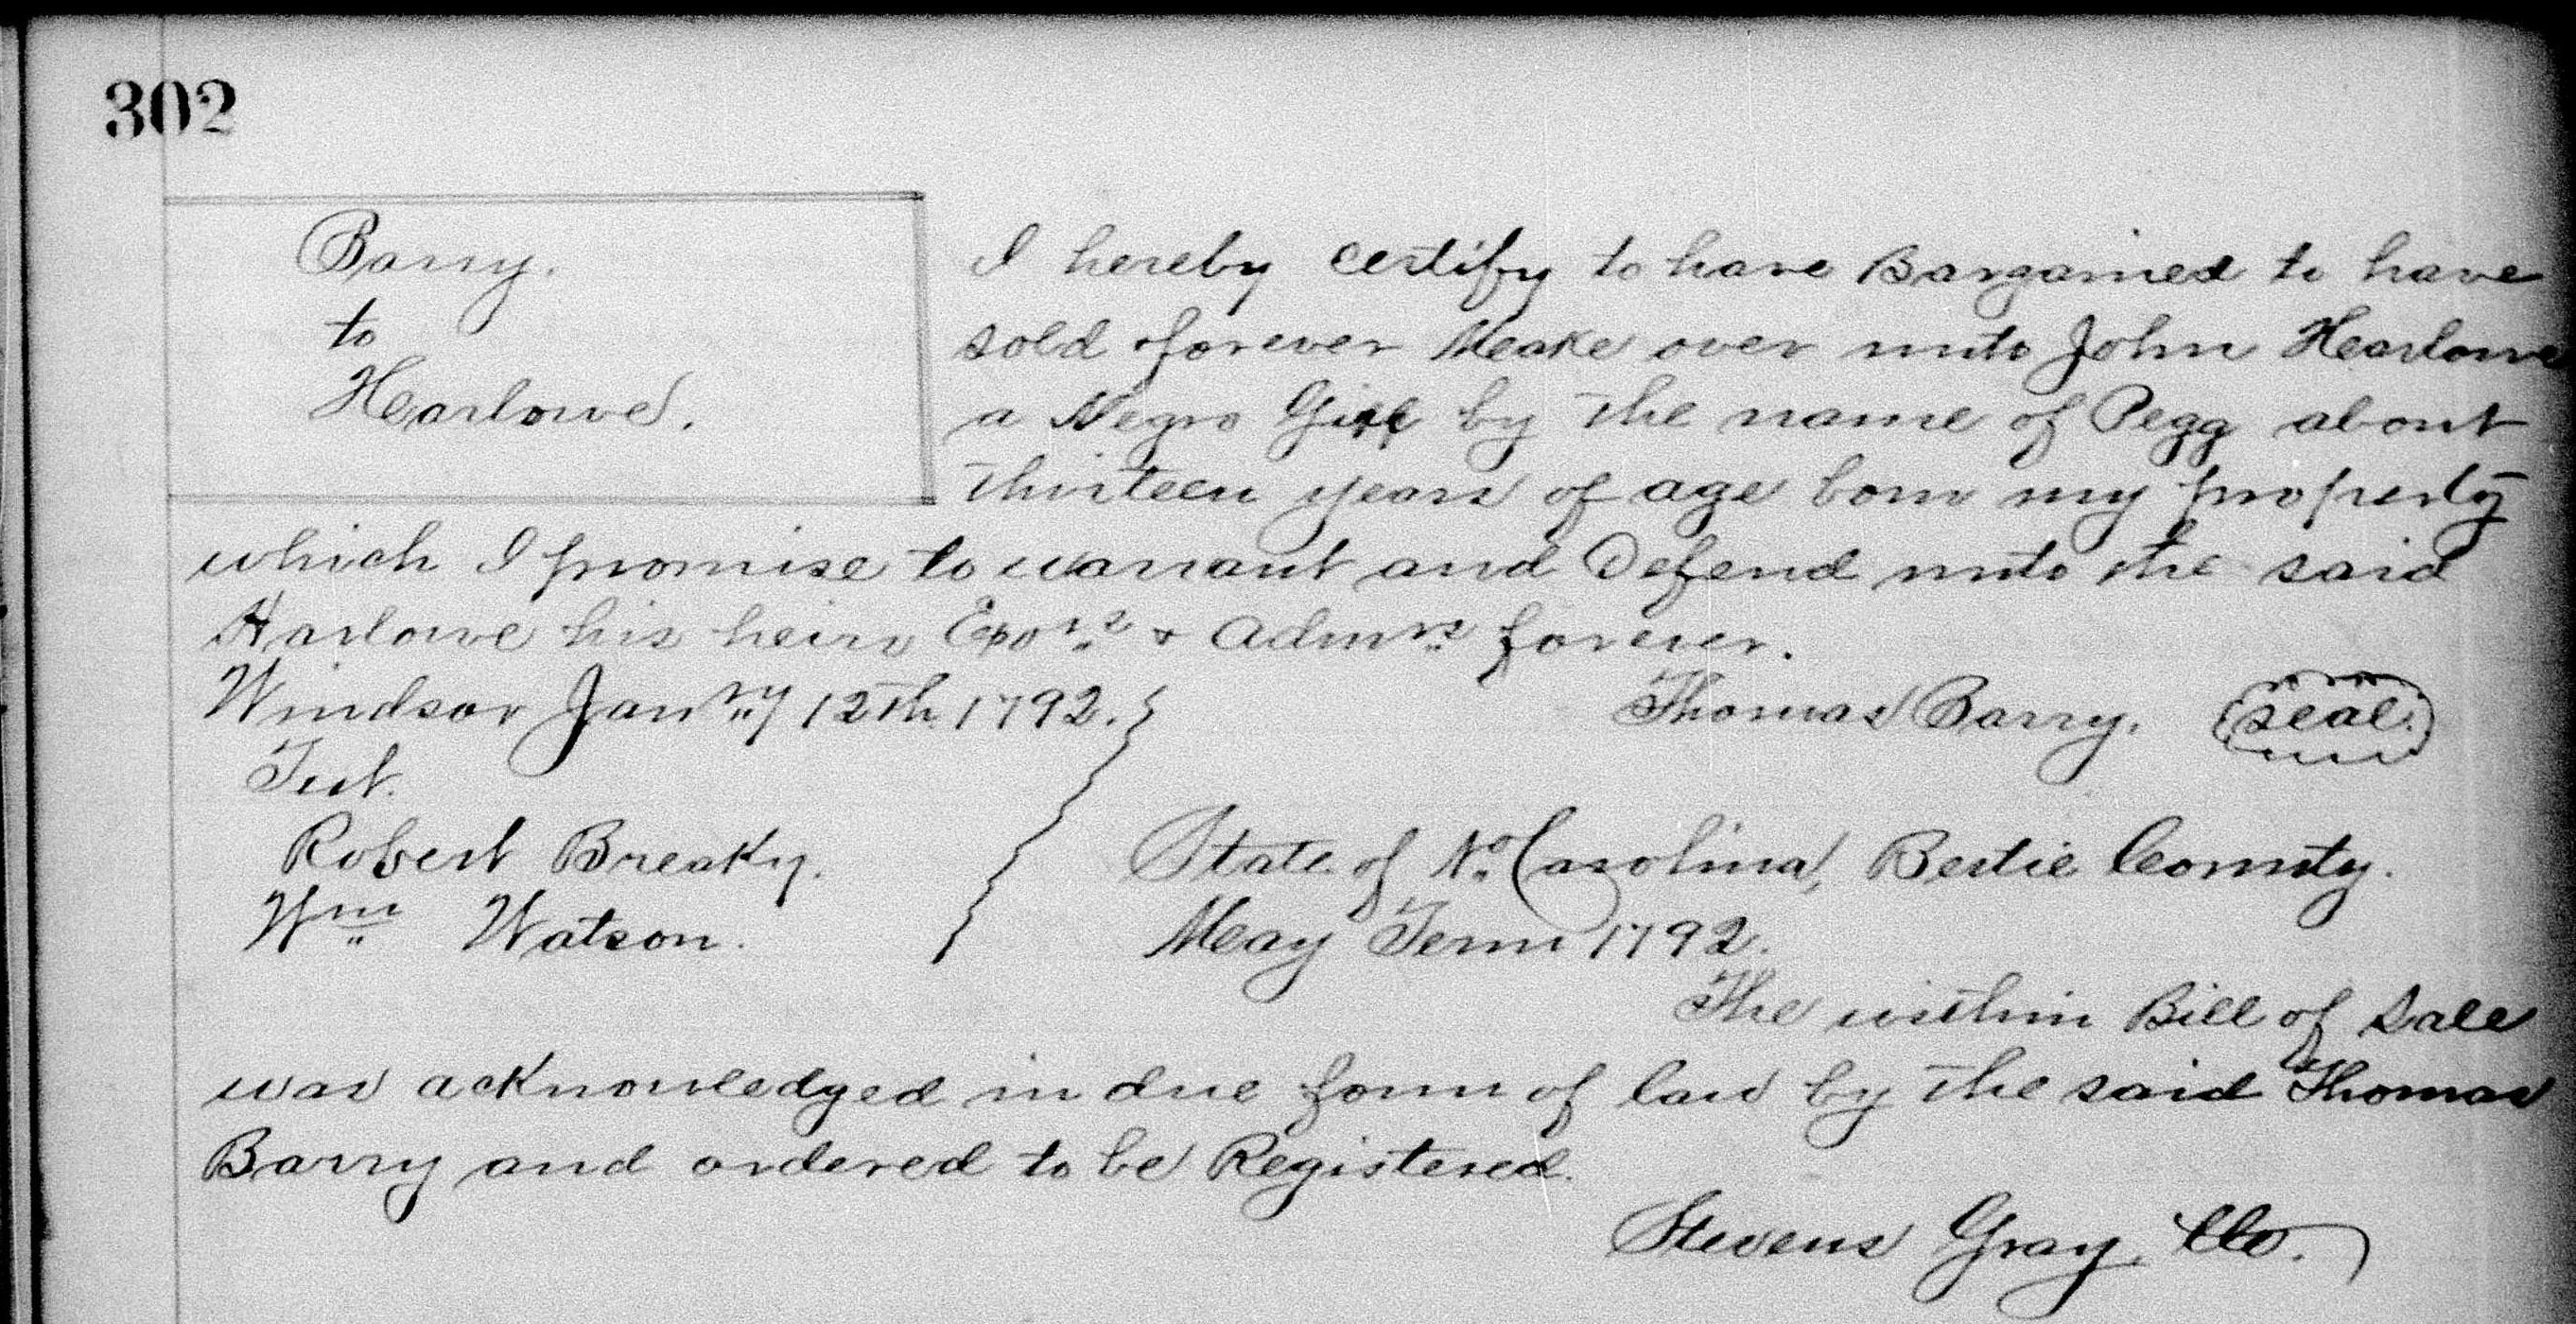 302
Barry.
to
Hearlowe.
I hereby certify to have Bargained to have
sold forever Meake over unto John Hearlowe
a Negro Girl by the name of Pegg about
thirteen years of age born my property
which I promise to warrant and Defend unto the said
Harlowe his heirs Exors & Admrs forever.
Windsor Janry 12th 1792.
Thomas Barry. seal.
Test.
Robert Breaky.
Wm Watson.
State of No Carolina, Bertie County.
Meay Term 1792.
The within Bill of Sale
was acknowledged in due form of law by the said Thomas
Barry and ordered to be Registered.
Stevens Gray, CC.